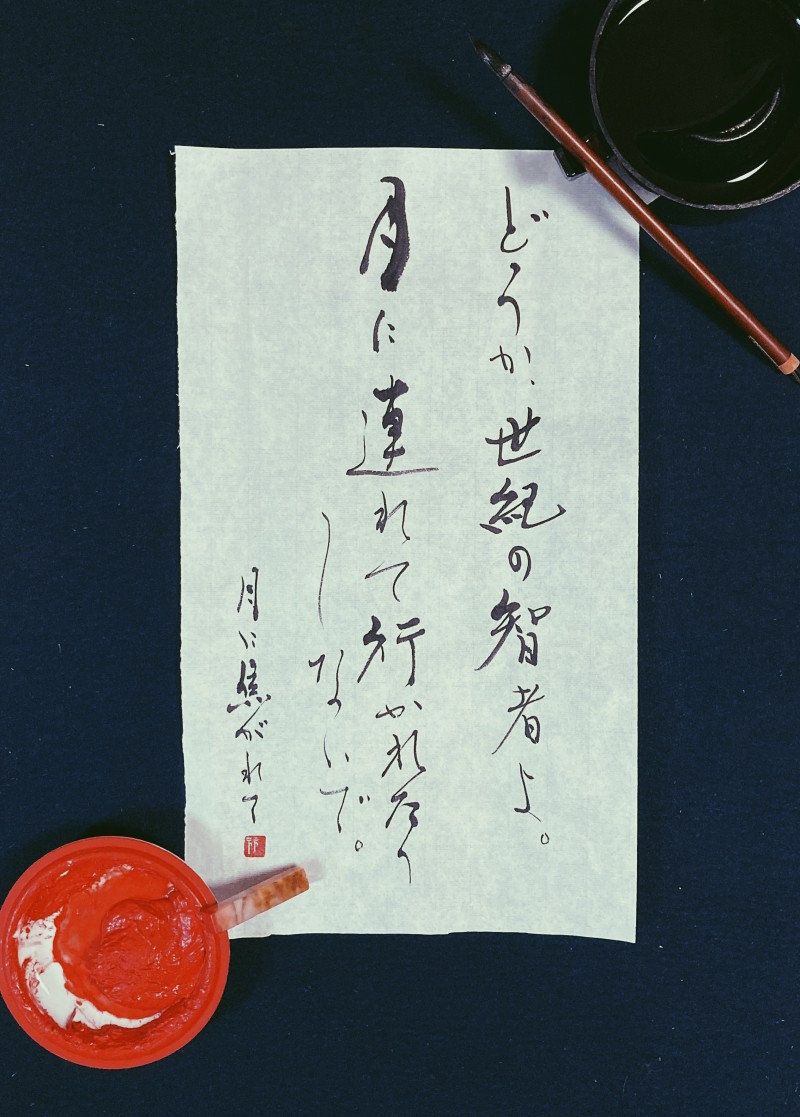 どうか、世紀の智者よ。
月に連れて行かれたり
しないで。
月に焦がれて